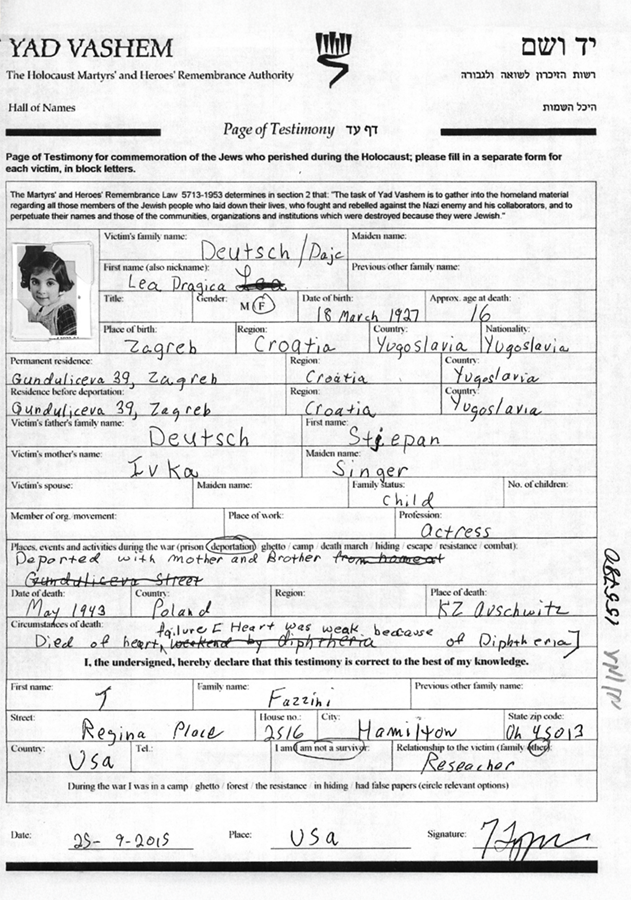 YAD VASHEM
יד ושם
The Holocaust Martyrs' and Heroes' Remembrance Authority
רשות הזיכרון לשואה ולגבורה
Hall of Names
היכל השמות
Page of Testimony דף עד
Page of Testimony for commemoration of the Jews who perished during the Holocaust; please fill in a separate form for
each victim, in block letters.
The Martyrs' and Heroes' Remembrance Law 5713-1953 determines in section 2 that: "The task of Yad Vashem is to gather into the homeland material
regarding all those members of the Jewish people who laid down their lives, who fought and rebelled against the Nazi enemy and his collaborators, and to
perpetuate their names and those of the communities, organizations and institutions which were destroyed because they were Jewish."
Victim's family name: Maiden name:
Deutsch/Dajc
First name (also nickname): Previous other family name:
Lea Dragica Lea
Title: Gender: Date of birth: Approx. age at death:
M F 18 March 1927 16
Place of birth: Region: Country: Nationality:
Zagreb Croatia Yugoslavia Yugoslavia
Permanent residence: Region: Country:
Gunduliceva 39, Zagreb Croatia Yugoslavia
Residence before deportation: Region: Country:
Gunduliceva 39, Zagreb Croatia Yugoslavia
Victim's father's family name: First name:
Deutsch Stjepan
Victim's mother's name: Maiden name:
Ivka Singer
Victim's spouse: Maiden name: Family status: No. of children:
child
Member of org./movement: Place of work: Profession:
actress
Places, events and activities during the war (prison / deportation / ghetto / camp / death march / hiding / escape / resistance / combat):
Deported with mother and Brother from home at
Gunduliceva Street
Date of death: Country: Region: Place of death:
May 1943 Poland KZ Auschwitz
Circumstances of death: failure [Heart was weak because
Died of heart, weakend by diphtheria of Diphtheria]
I, the undersigned, hereby declare that this testimony is correct to the best of my knowledge.
First name: Family name: Previous other family name:
T Fazzini
Street: House no.: City: State zip code:
Regina Place 2516 Hamilton Oh 45013
Country: Tel.: I am / am not a survivor: Relationship to the victim (family /other):
USA Reseacher
During the war I was in a camp / ghetto / forest / the resistance / in hiding / had false papers (circle relevant options)
Date: 25-9-2015 Place: USA Signature: